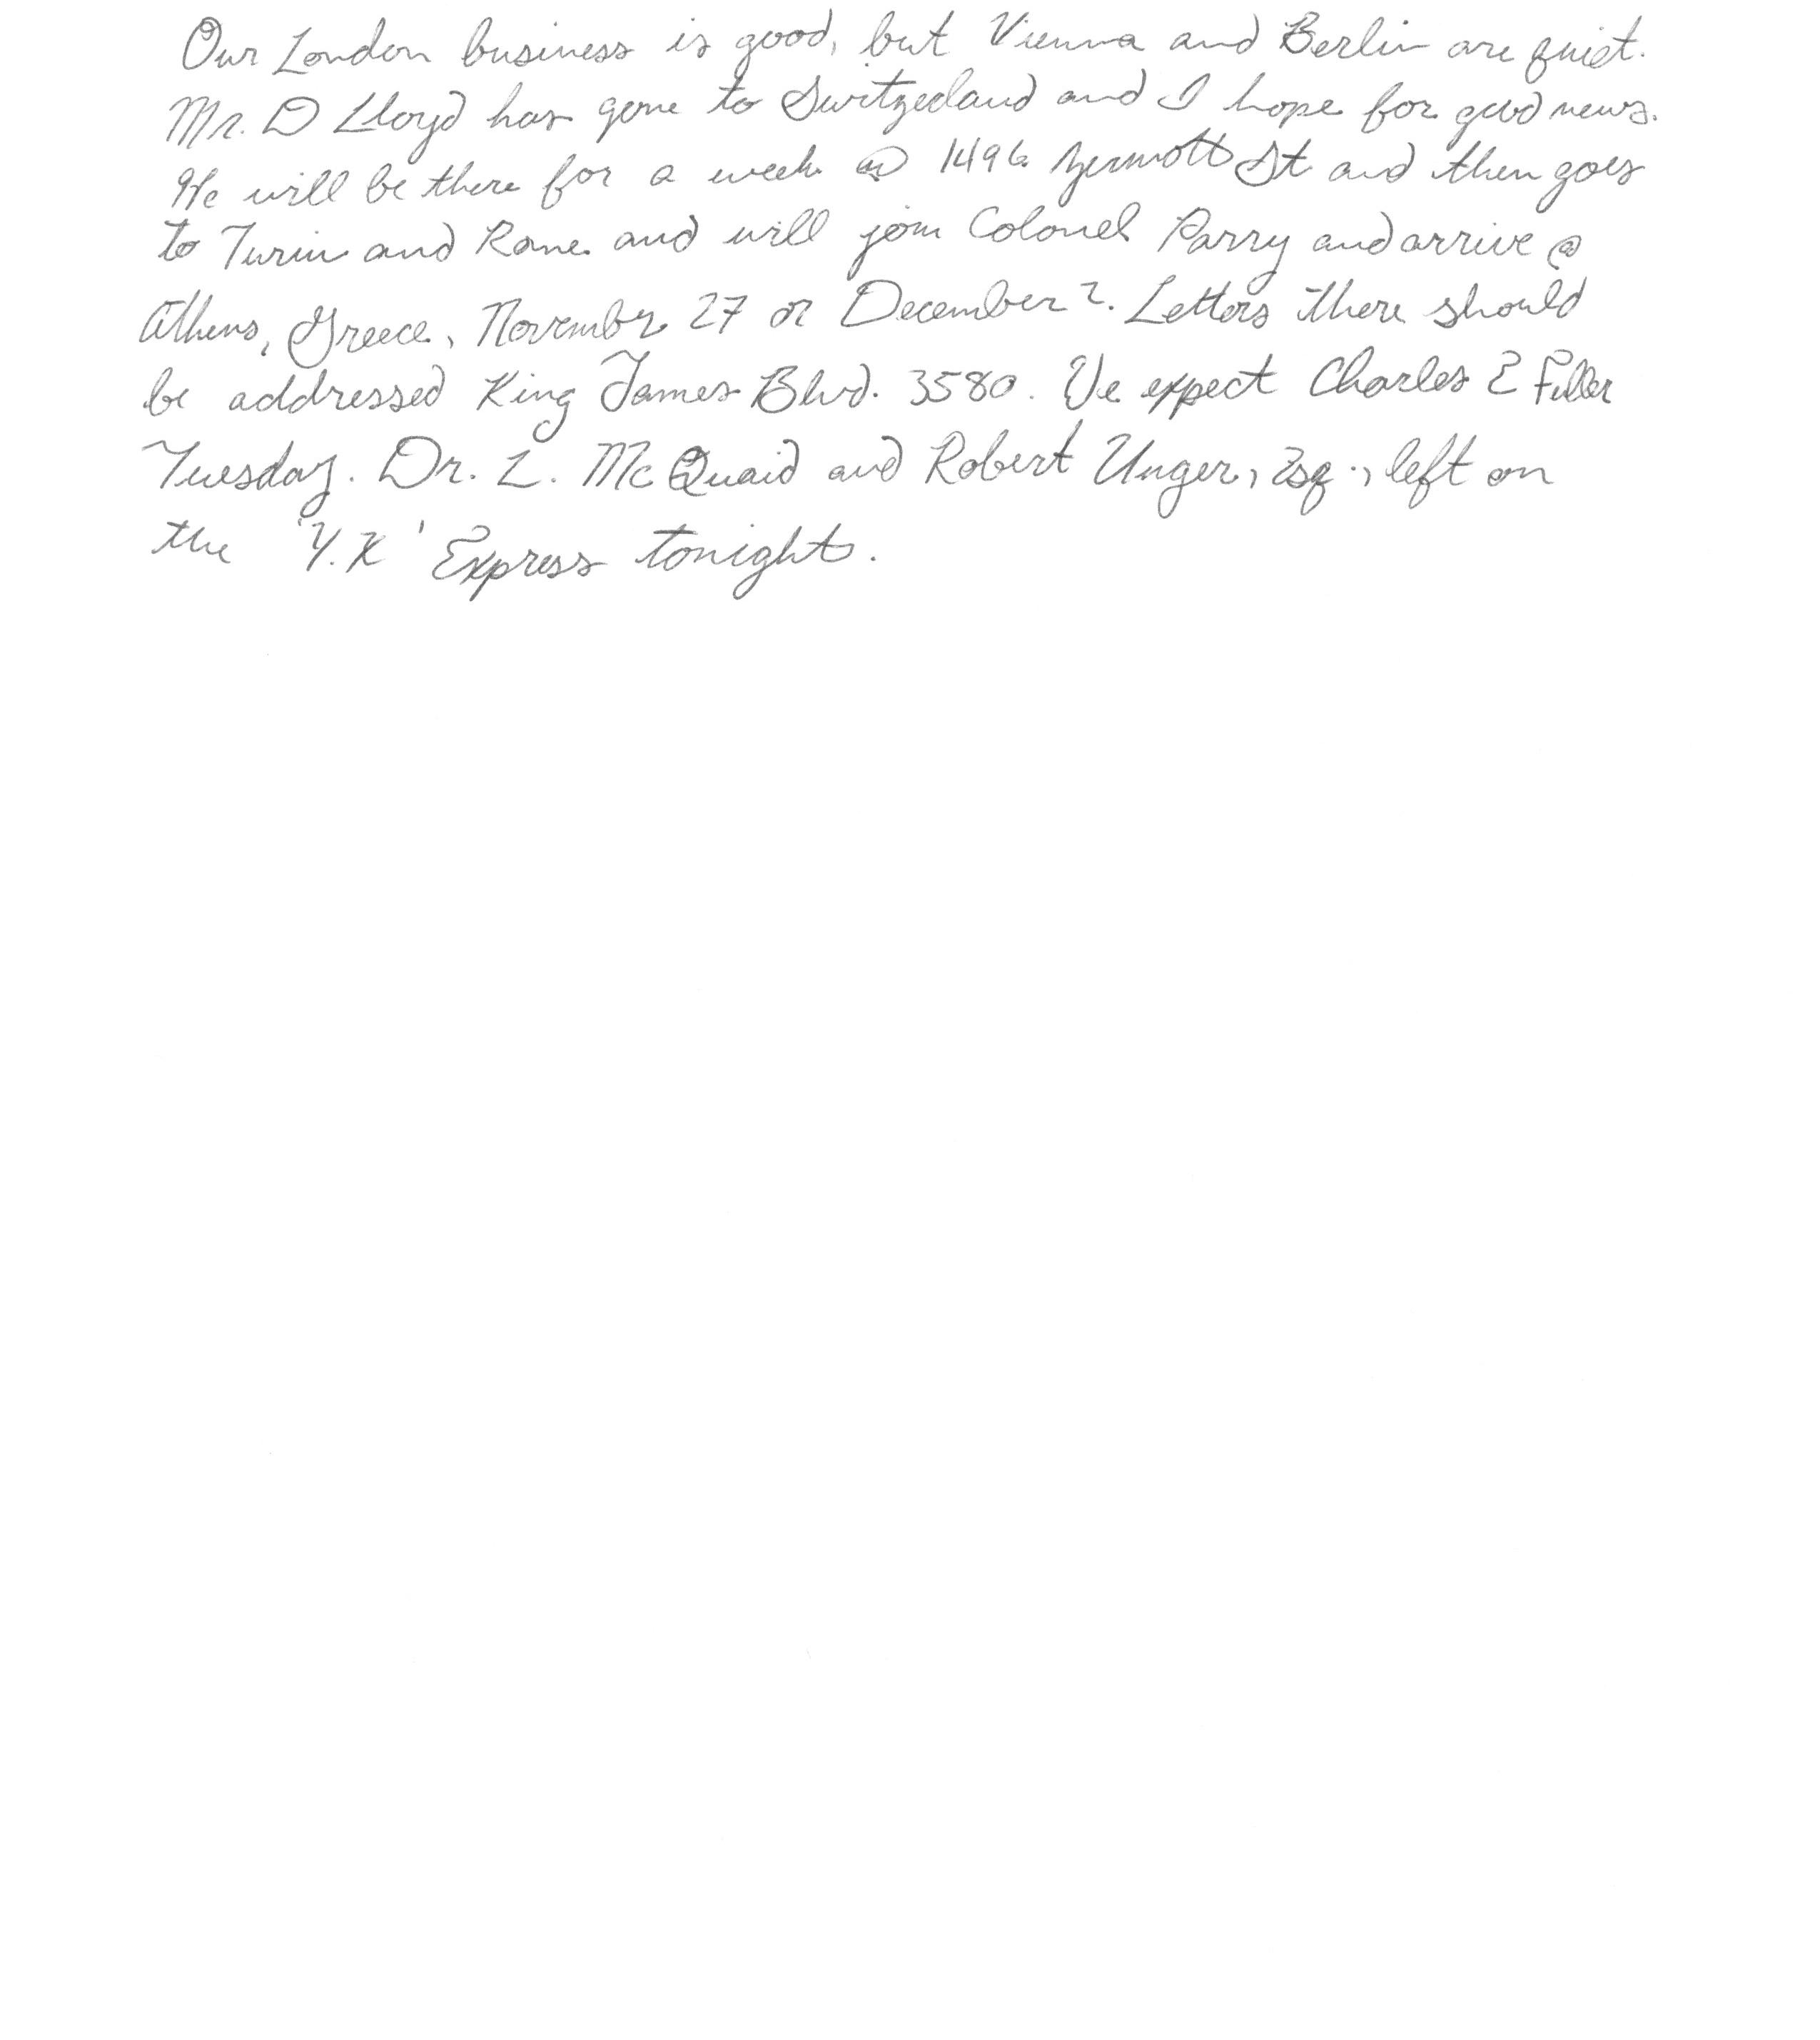 Our London business is good, but Vienna and Berlin are quiet.
Mr. D Lloyd has gone to Switzerland and I hope for good news.
He will be there for a week @ 1496 Zermott St and then goes
to Turin and Rome and will join Colonel Parry and arrive @
Athens, Greece, November 27 or December 2. Letters there should
be addressed King James Blvd. 3580. We expect Charles E Fuller
Tuesday. Dr. L. McQuaid and Robert Unger, Esq., left on
the 'Y.X' Express tonight.